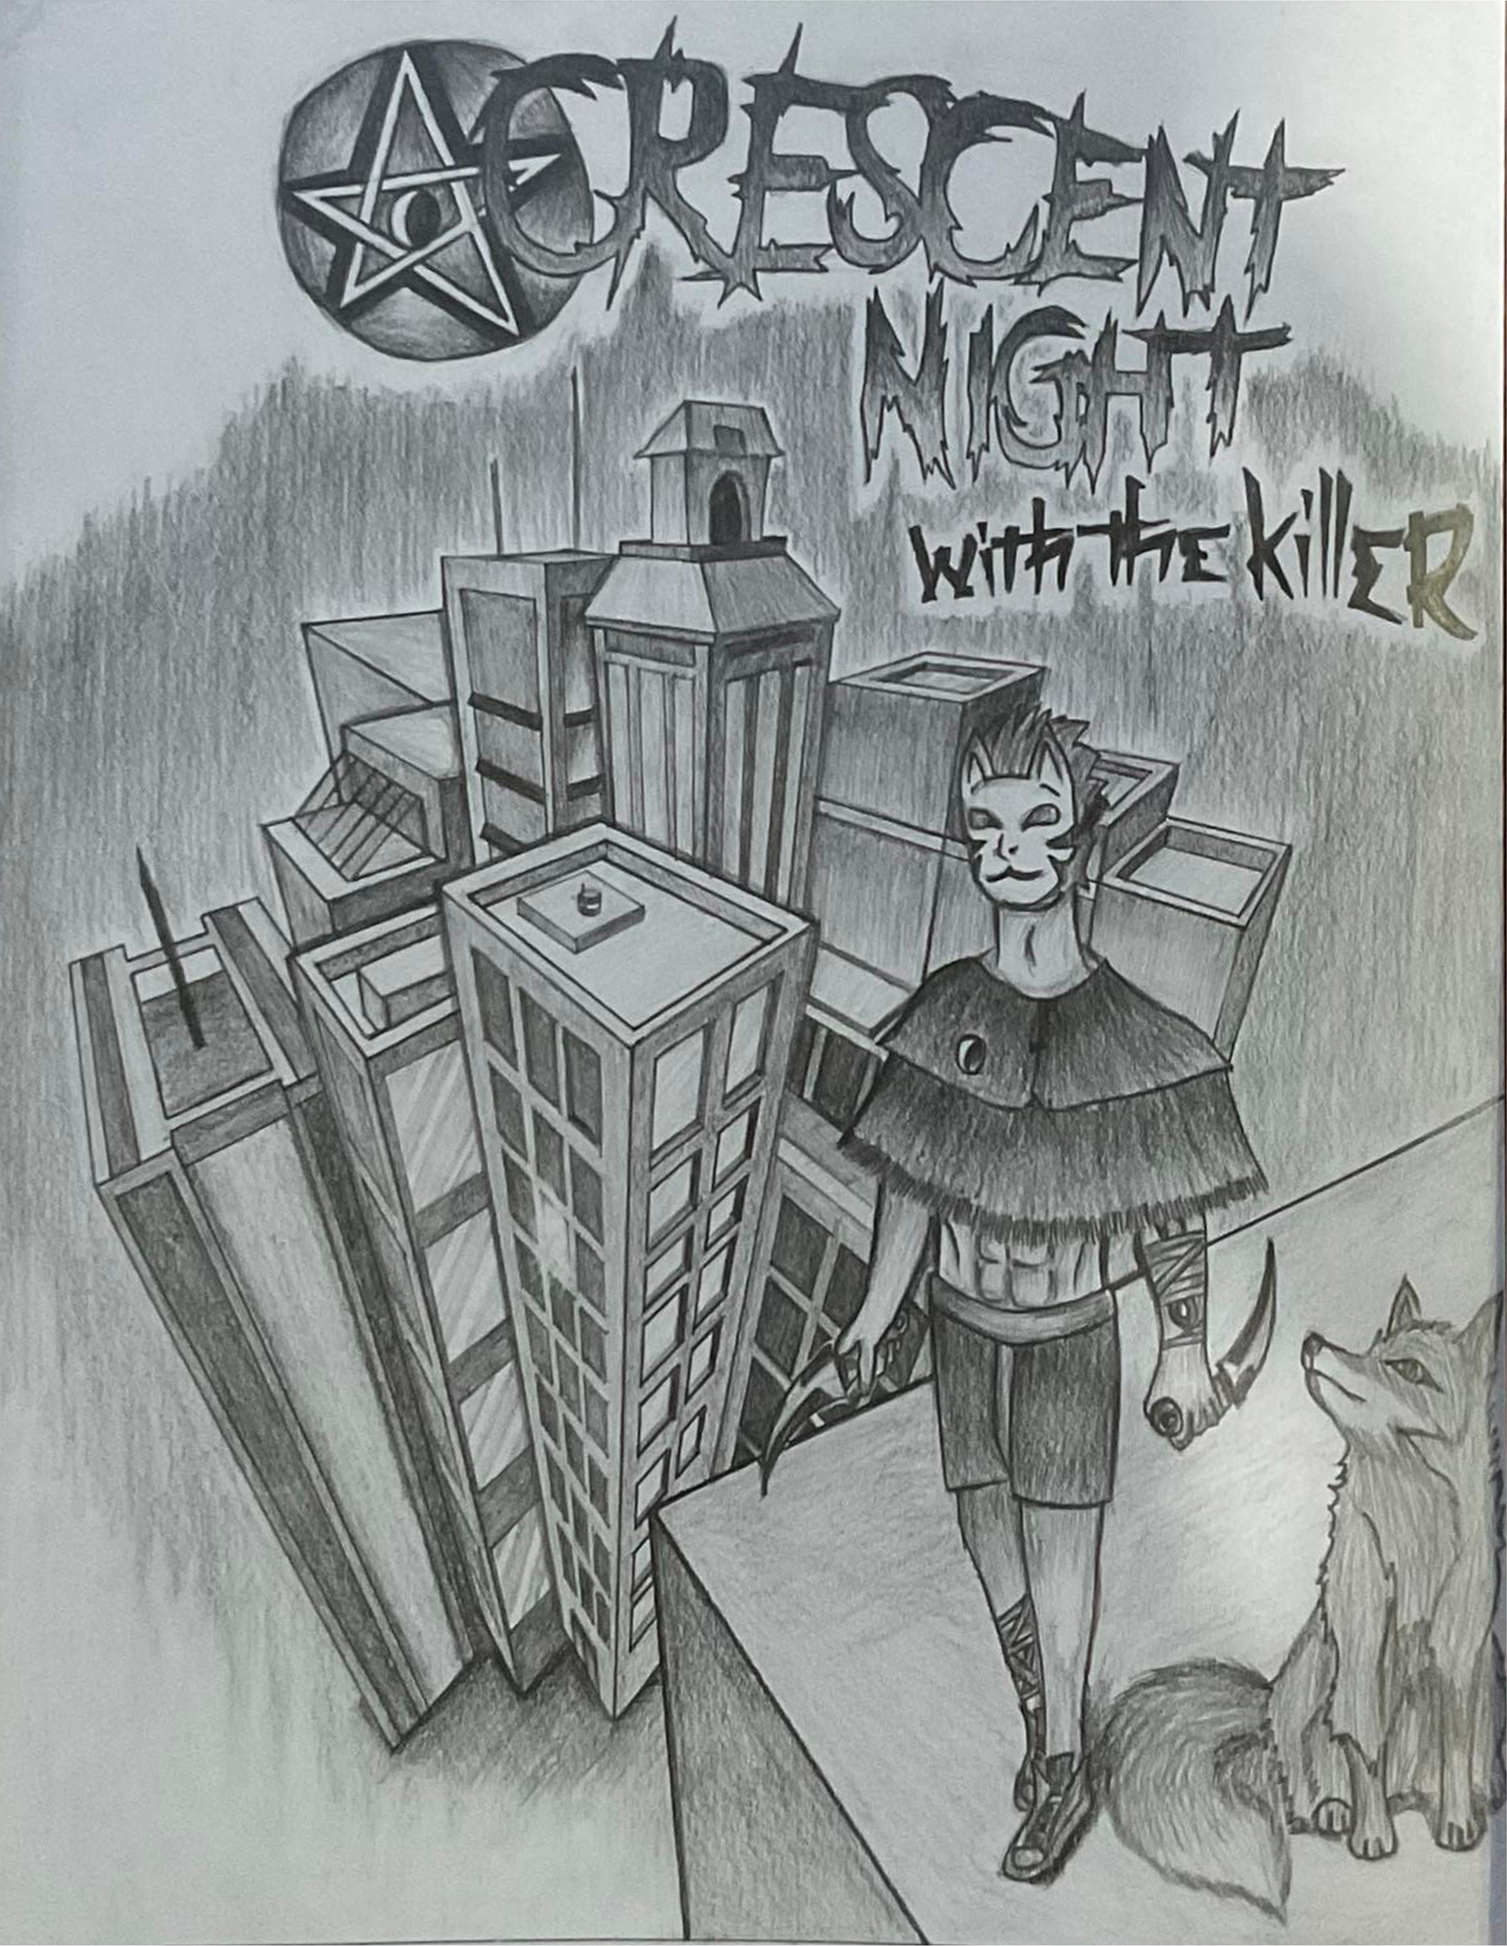 CRESCENT
NIGHT
with thE killER